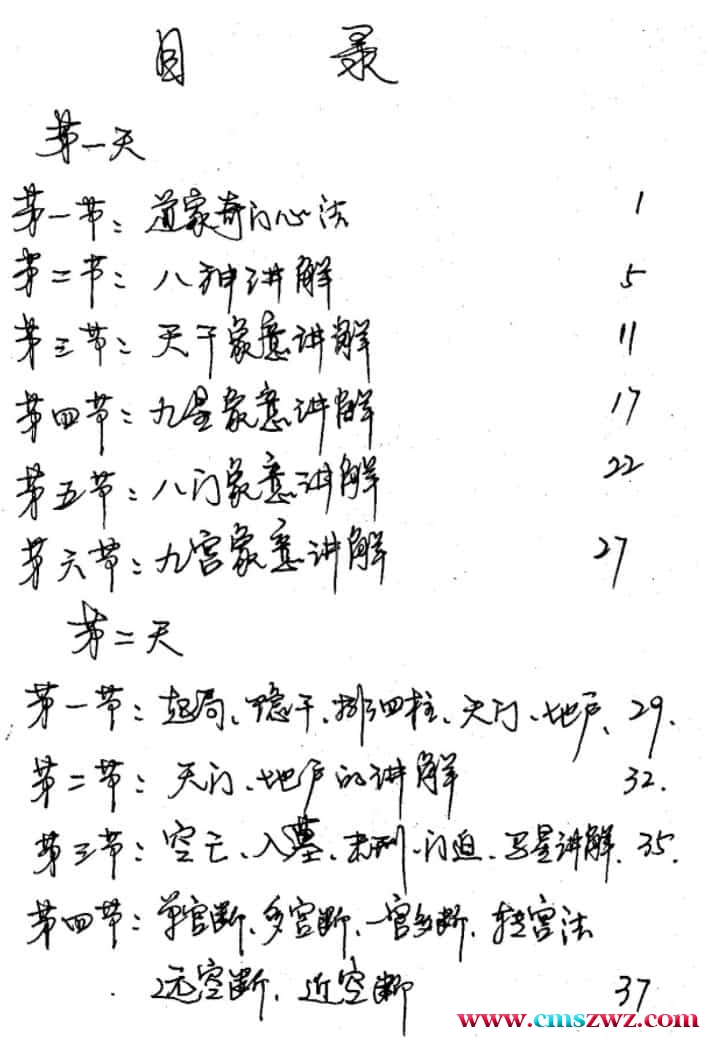 目 录
第一天
第一节：道家奇门心法 1
第二节：八神讲解 5
第三节：天干象意讲解 11
第四节：九星象意讲解 17
第五节：八门象意讲解 22
第六节：九宫象意讲解 27
第二天
第一节：起局、隐干、排四柱、天门、地户、29.
第二节：天门、地户的讲解 32.
第三节：空亡、入墓、击刑、门迫、马星讲解、35.
第四节：单宫断、多宫断、一宫多断、转宫法
远空断、近空断 37
www.cmszwz.com